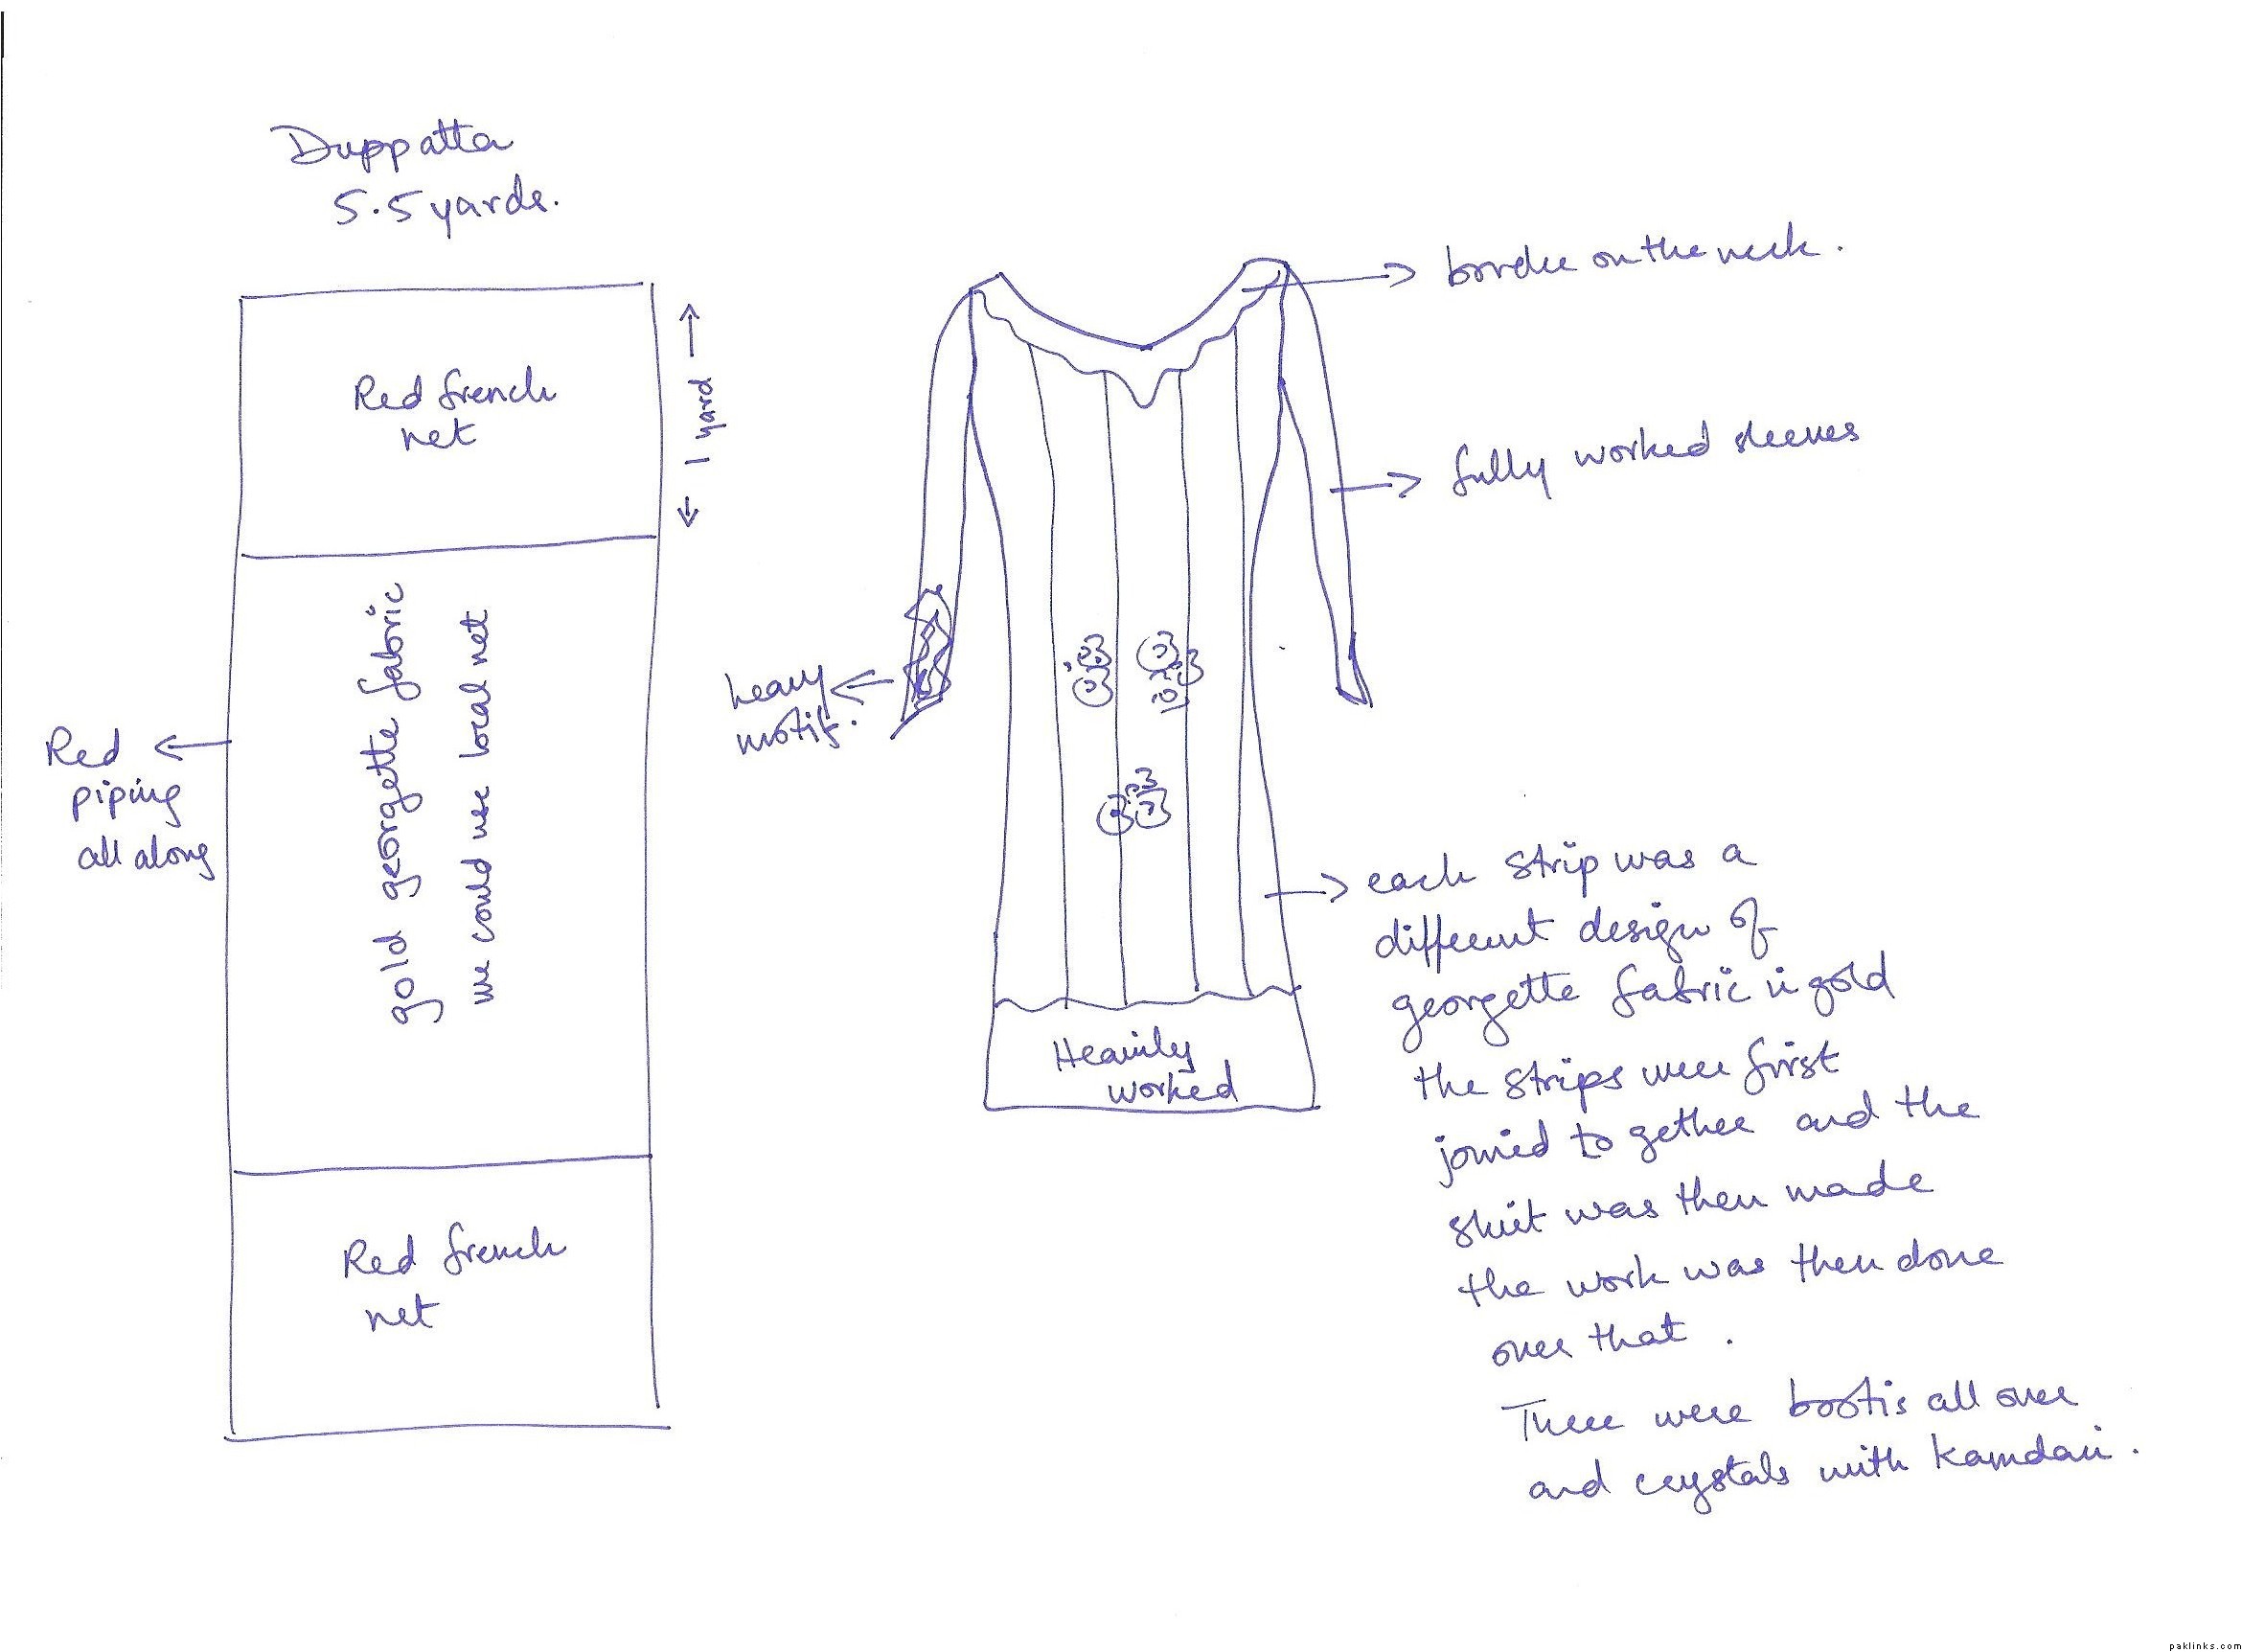 Duppatta
5.5 yards.
Red french
net
1 yard
gold georgette fabric
we could use local net
Red
piping
all along
Red french
net
border on the neck.
fully worked sleeves
heavy
motif.
Heavily
worked
each strip was a
different design of
georgette fabric in gold
the strips were first
joined to gether and the
shirt was then made
the work was then done
over that.
There were bootis all over
and crystals with Kamdani.
paklinks.com